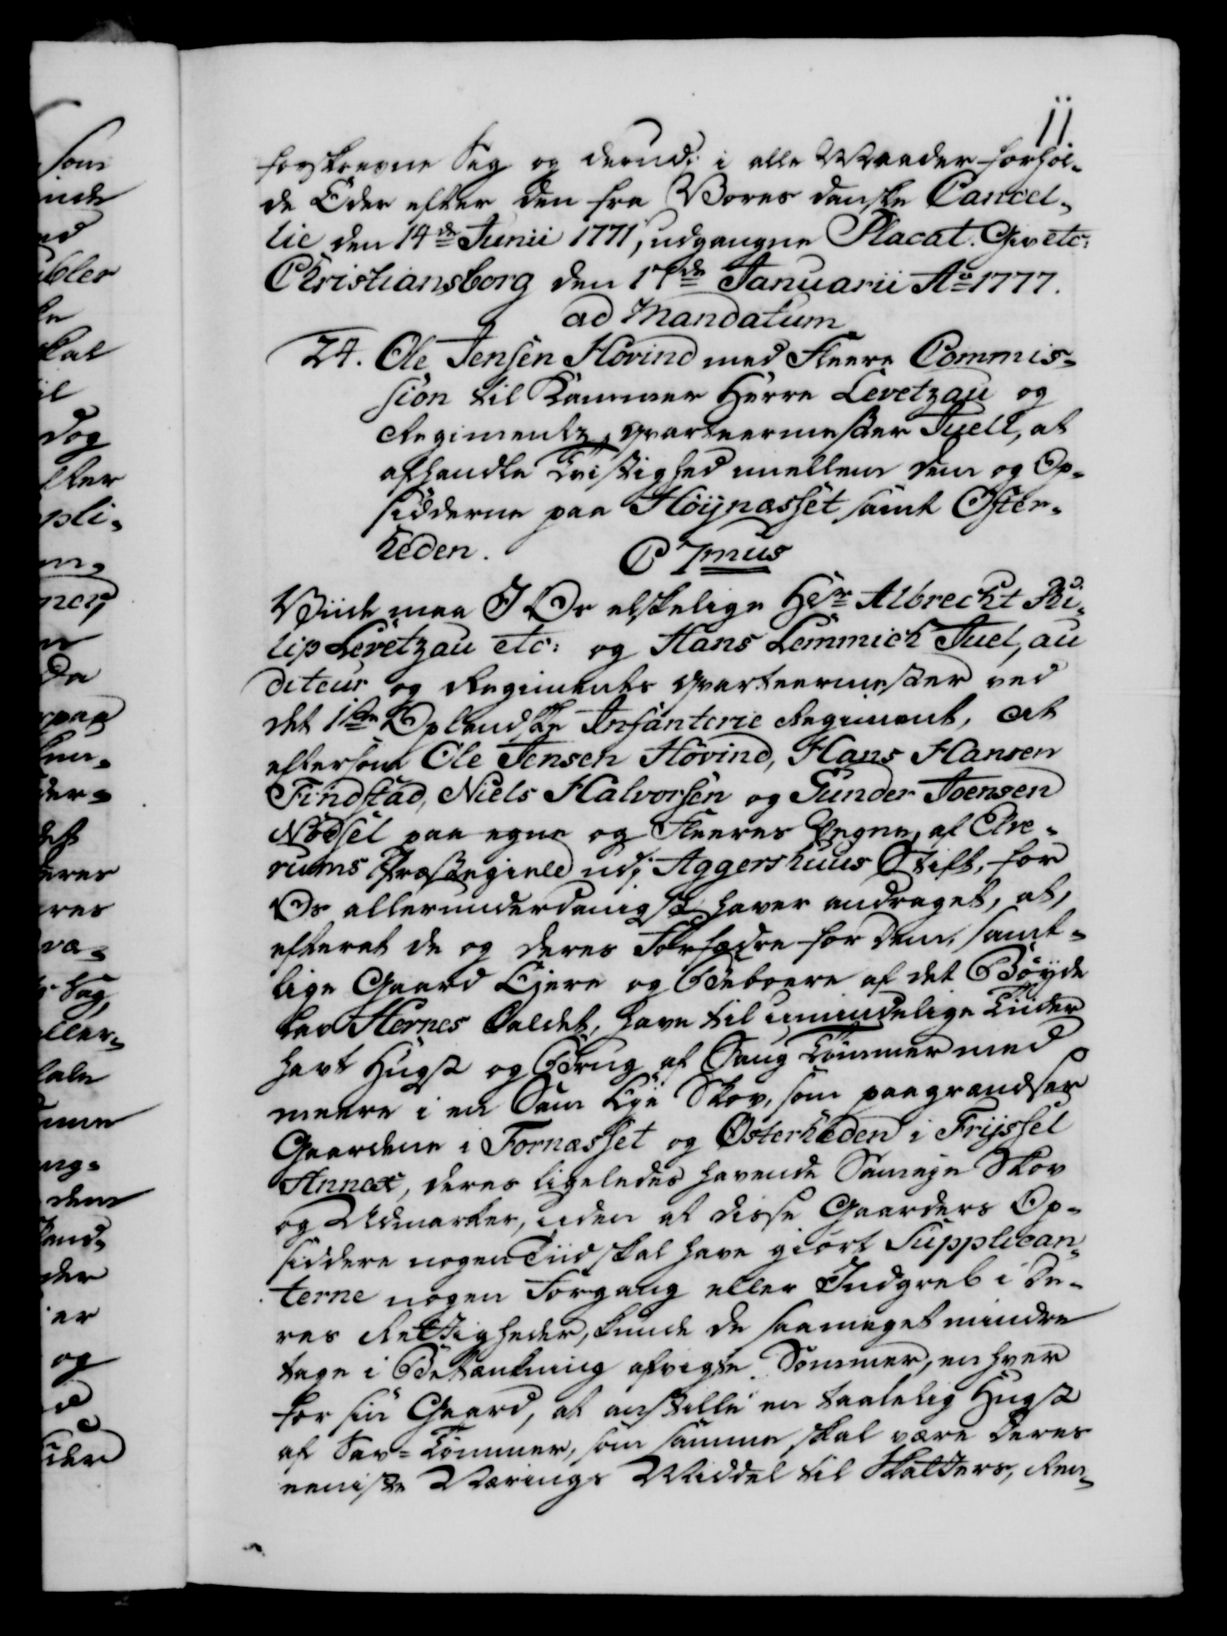 11
forskrevne Sag og derudi i alle Maader forhol-
de Eder efter den fra Vores danske Cancel-
lie den 14de Junii 1771, udgangne Placat. Giv etc:
Christiansborg den 17de Januarii Ao 1777.
ad Mandatum
24. Ole Jensen Hovind med Fleere Commis-
sion til Kammer Herre Levetzau og
Regiments, qvarteermester Juell, at
afhandle Tvistighed imellem dem og Op-
sidderne paa Höÿnæsset samt Öster-
heden. C 7mus
Viide maa I Os elskelige Hr Albrecht Phi-
lip Levetzau etc: og Hans Lemmich Juel, au
diteur og Regiments qvarteermester ved
det 1ste Oplandske Infanterie Regiment, at
eftersom Ole Jensen Hovind, Hans Hansen
Findstad, Niels Halvorsen og Gunder Joensen
Nödsel paa egne og Fleeres Vegne, af Elve-
rums Præstegield udi Aggershuus Stift, for
Os allerunderdanigst haver andraget, at,
efterat de og deres Forfædre for dem, samt-
lige Gaard Ejere og Beboere af det Böyde
Hernes Caldet, have til umindelige Tiider
havt Hugst og Brug af Saug Tömmer med
meere i en Sam Eje Skov, som paagrandser
Gaardene i Fornæsset og Österheden i Trÿssel
Annex, deres ligeledes havende Sameje Skov
og Udmarker, uden at disse Gaarders Op-
siddere nogen Tiid skal have giort Supplican-
terne nogen Forgang eller Indgreb i De-
res Rettigheder, kunde de saameget mindre
tage i Betænkning afvigte Sommer, enhver
for sin Gaard, at anstille en taalelig Hugst
af Sav-Tömmer, som samme skal være deres
eeniste Nærings Middel til Skatters, Ren-